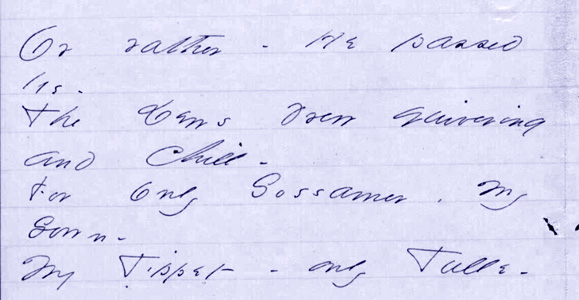 Or rather - He passed
Us -
The Dews drew quivering
and Chill -
For only Gossamer, my
Gown -
My Tippet - only Tulle -